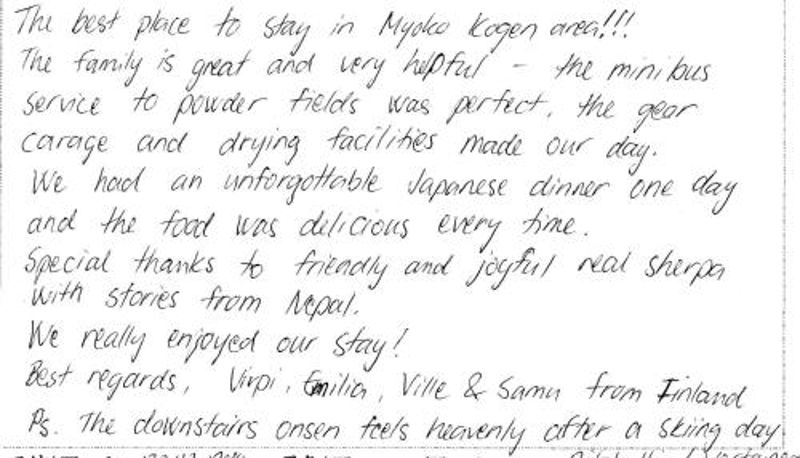 The best place to stay in Myoko Kogen area!!!
The family is great and very helpful - the minibus
service to powder fields was perfect, the gear
carage and drying facilities made our day.
We had an unforgottable Japanese dinner one day
and the food was delicious every time.
Special thanks to friendly and joyful real sherpa
with stories from Nepal.
We really enjoyed our stay!
Best regards, Virpi, Emilia, Ville & Samu from Finland
Ps. The downstairs onsen feels heavenly after a skiing day.